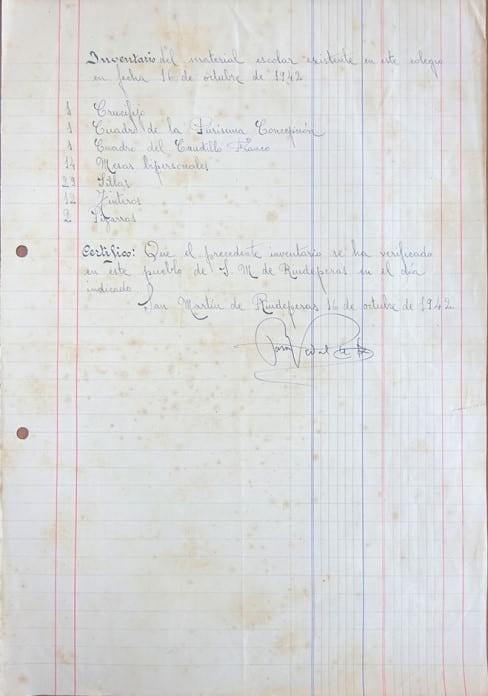 Inventario del material escolar existente en este colegio
en fecha 16 de octubre de 1942
1 Crucifijo
1 Cuadro de la Purisima Concepción
1 Cuadro del Caudillo Franco
14 Mesas bipersonales
29 Sillas
12 Tinteros
2 Pizarras
Certifico: Que el precedente inventario se ha verificado
en este pueblo de S. M. de Rudeperas en el día
indicado
San Martín de Rudeperas 16 de octubre de 1942